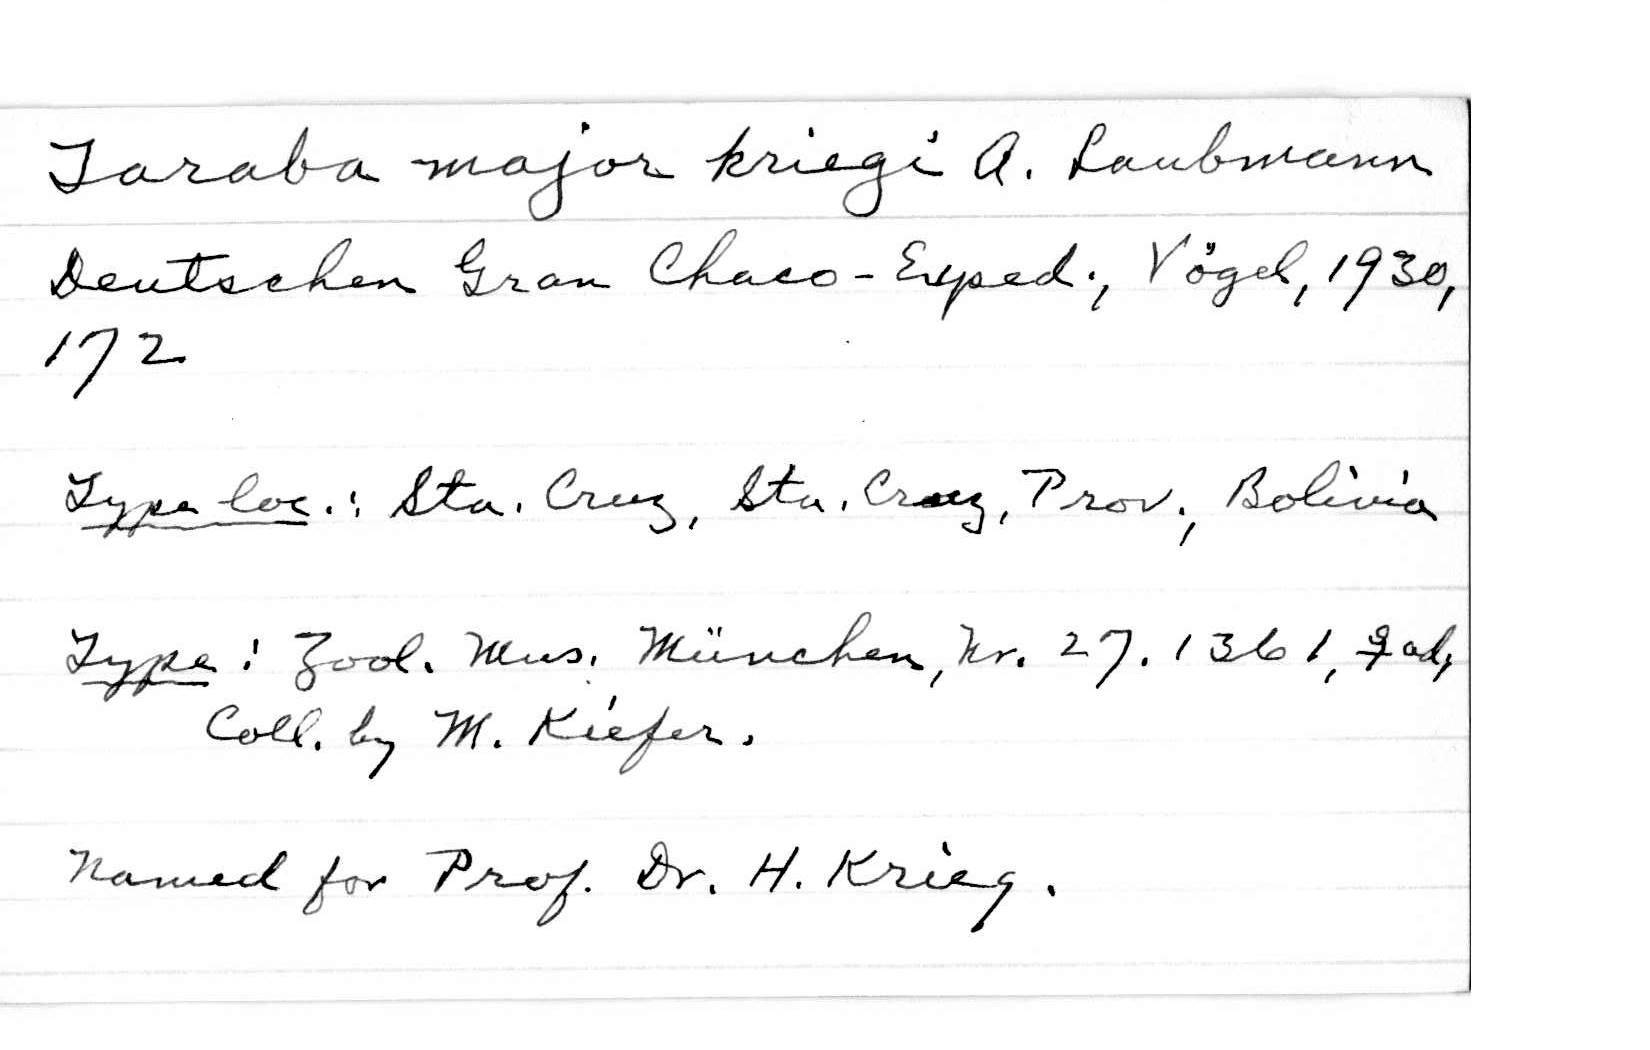 Taraba major kriegi A. Laubmann
Deutschen Gran Chaco-Exped., Vögel, 1930,
172
Type loc.: Sta. Cruz, Sta. Cruz, Prov., Bolivia
Type: Zool. Mus. München, Nr. 27.1361, ♀ ad,
Coll. by M. Kiefer.
Named for Prof. Dr. H. Krieg.